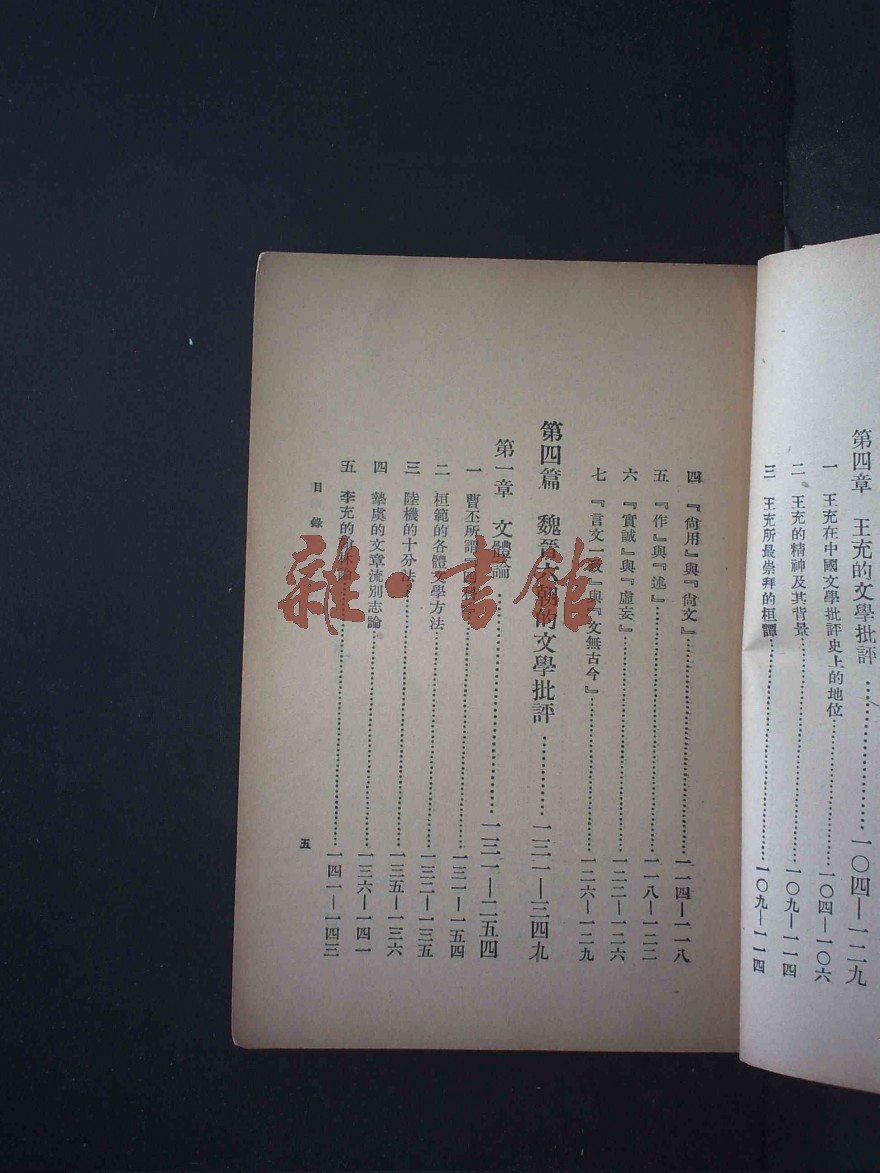 第四章 王充的文學批評……一〇四—一二九
一 王充在中國文學批評史上的地位……一〇四—一〇六
二 王充的精神及其背景……一〇九—一一四
三 王充所最崇拜的桓譚……一〇九—一一四
四 『尙用』與『尙文』……一一四—一一八
五 『作』與『述』……一一八—一二二
六 『實誠』與『虛妄』……一二二—一二六
七 『言文一致』與『文無古今』……一二六—一二九
第四篇 魏晉六朝的文學批評……一三一—三四九
第一章 文體論……一三一—二五四
一 曹丕所謂『四科』……一三一—一五四
二 桓範的各體文學方法……一三二—一三五
三 陸機的十分法……一三五—一三六
四 摯虞的文章流別志論……一三六—一四一
五 李充的翰林論……一四一—一四三
目錄
五
雜·書館